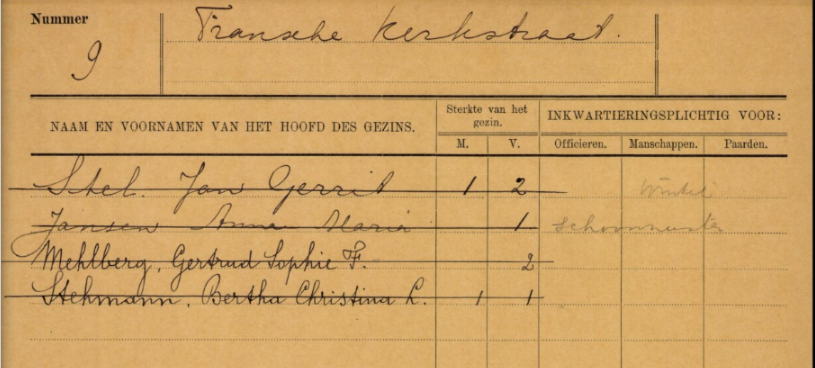 Nummer
9
Fransche Kerkstraat.
NAAM EN VOORNAMEN VAN HET HOOFD DES GEZINS.
Sterkte van het gezin.
INKWARTIERINGSPLICHTIG VOOR:
M. V. Officieren. Manschappen. Paarden.
Stel. Jan Gerrit 1 2 Winkel
Jansen Anna Maria 1
Mehlberg, Gertrud Sophie F. 2
Stehmann, Bertha Christina L. 1 1